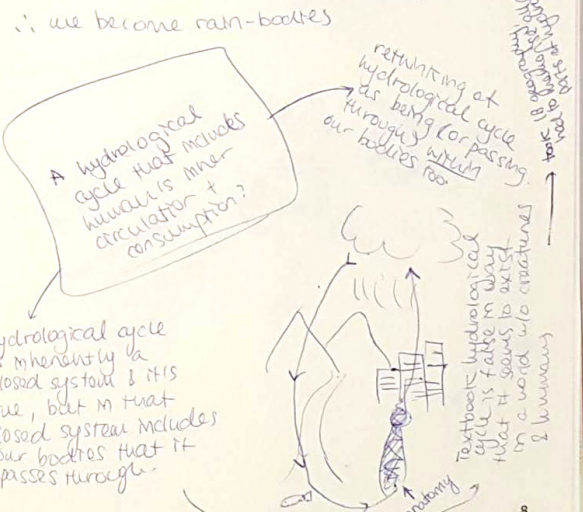 ∴ we become rain-bodies
A hydrological
cycle that includes
human's inner
circulation +
consumption?
rethinking of
hydrological cycle
as being (or passing
through) within
our bodies too
ydrological cycle
inherently a
losed system & it is
ue, but in that
osed system includes
our bodies that it
passes through.
Textbook hydrological
cycle is false in a way
that it seems to exist
in a world w/o creatures
& humans
took
geography
had to
natomy
8